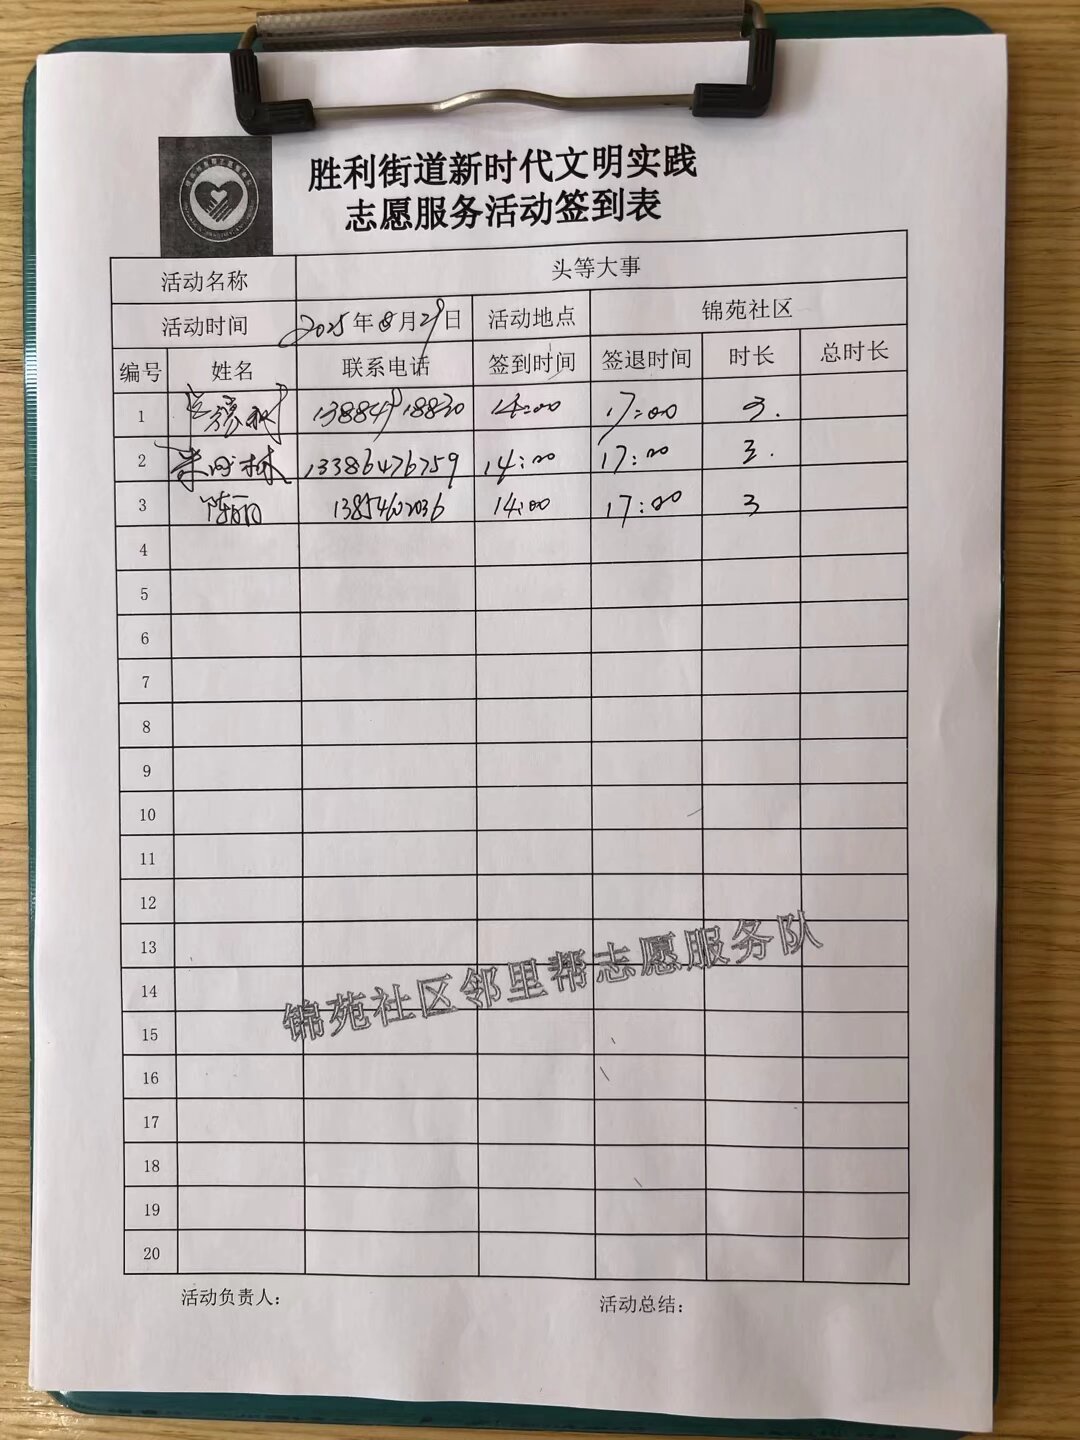 胜利街道新时代文明实践
志愿服务活动签到表
活动名称 头等大事
活动时间 2025年8月29日 活动地点 锦苑社区
编号 姓名 联系电话 签到时间 签退时间 时长 总时长
1 13884918830 14:00 17:00 3.
2 13386476759 14:00 17:00 3.
3 陈丽 13854602036 14:00 17:00 3
4
5
6
7
8
9
10
11
12
13
14
15
16
17
18
19
20
锦苑社区邻里帮志愿服务队
活动负责人: 活动总结: